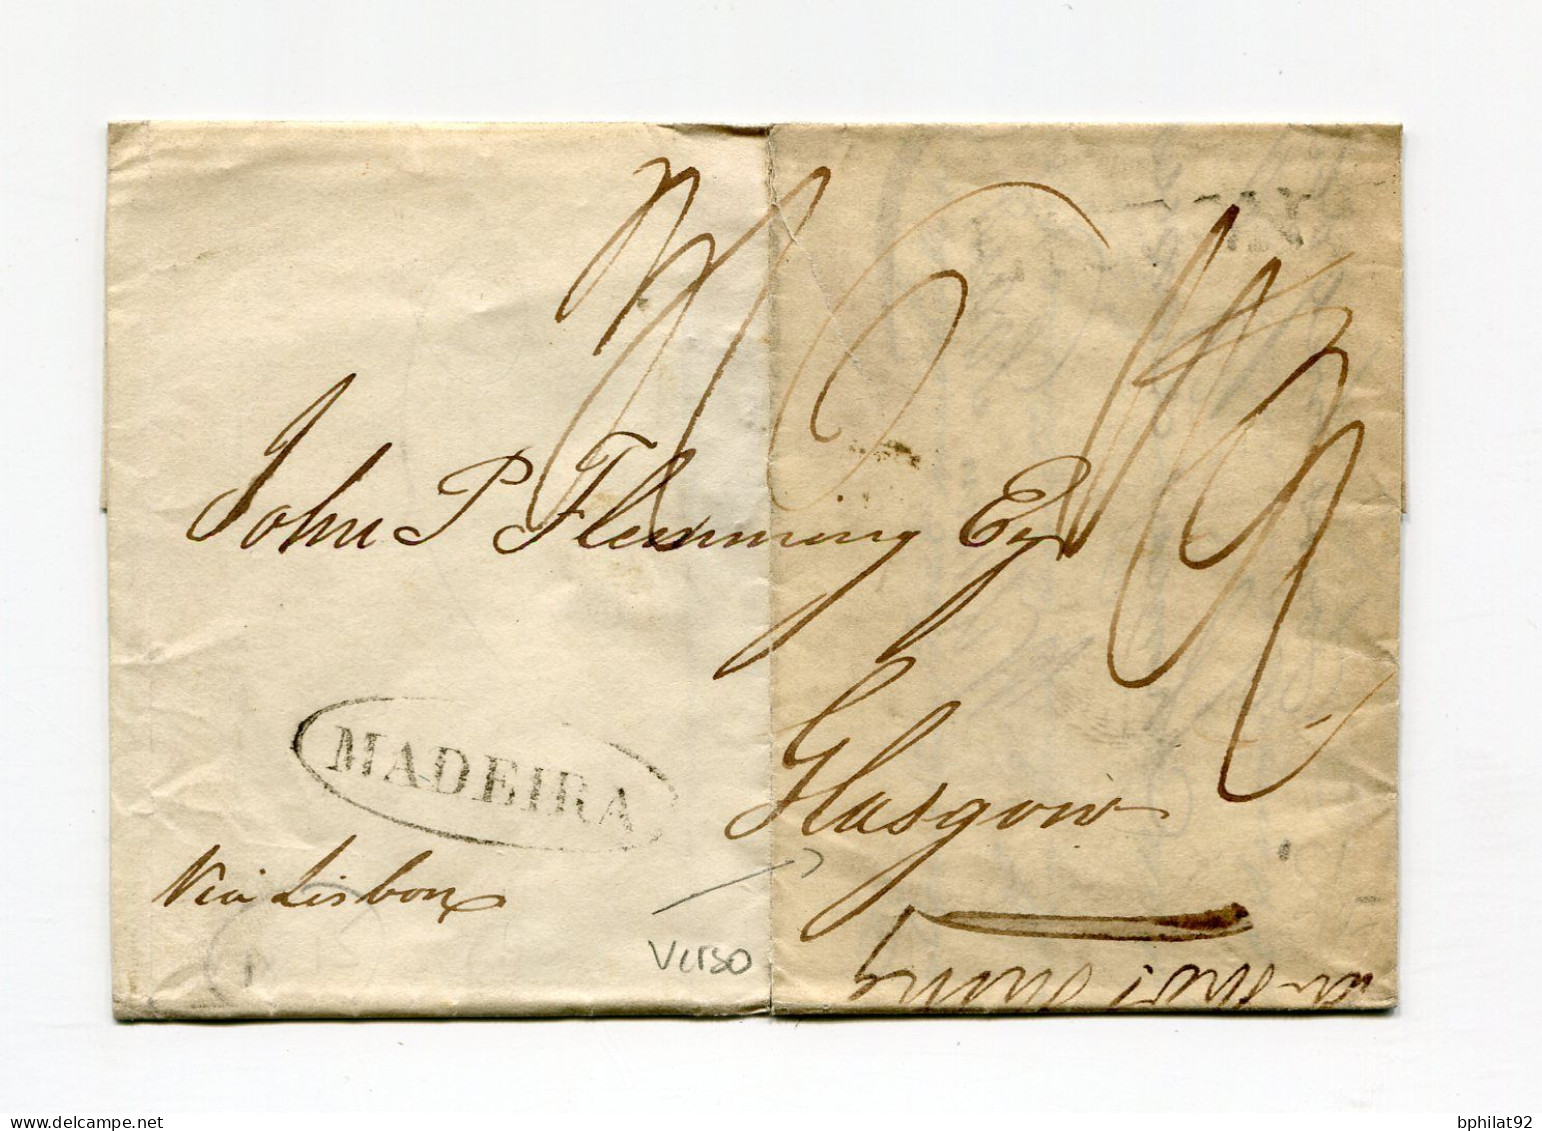 John P Flemming Esqr
Glasgow
MADEIRA
Via Lisbon
Verso
delcampe.net
bphilat92